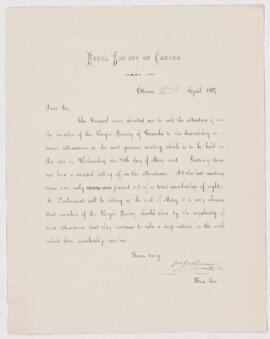 ROYAL SOCIETY OF CANADA.
Ottawa, April 1887.
Dear Sir,
The Council have directed me to call the attention of
the members of the Royal Society of Canada to the desirability of a
larger attendance at the next general meeting which is to be held in
this city on Wednesday the 25th day of May next. Latterly there
has been a decided falling off in the attendance. At the last meeting
there were only present out of a total membership of eighty.
As Parliament will be sitting at the end of May it is very obvious
that members of the Royal Society should show by the regularity of
their attendance that they continue to take a deep interest in the work
which their membership
Yours truly
Hon. Sec.